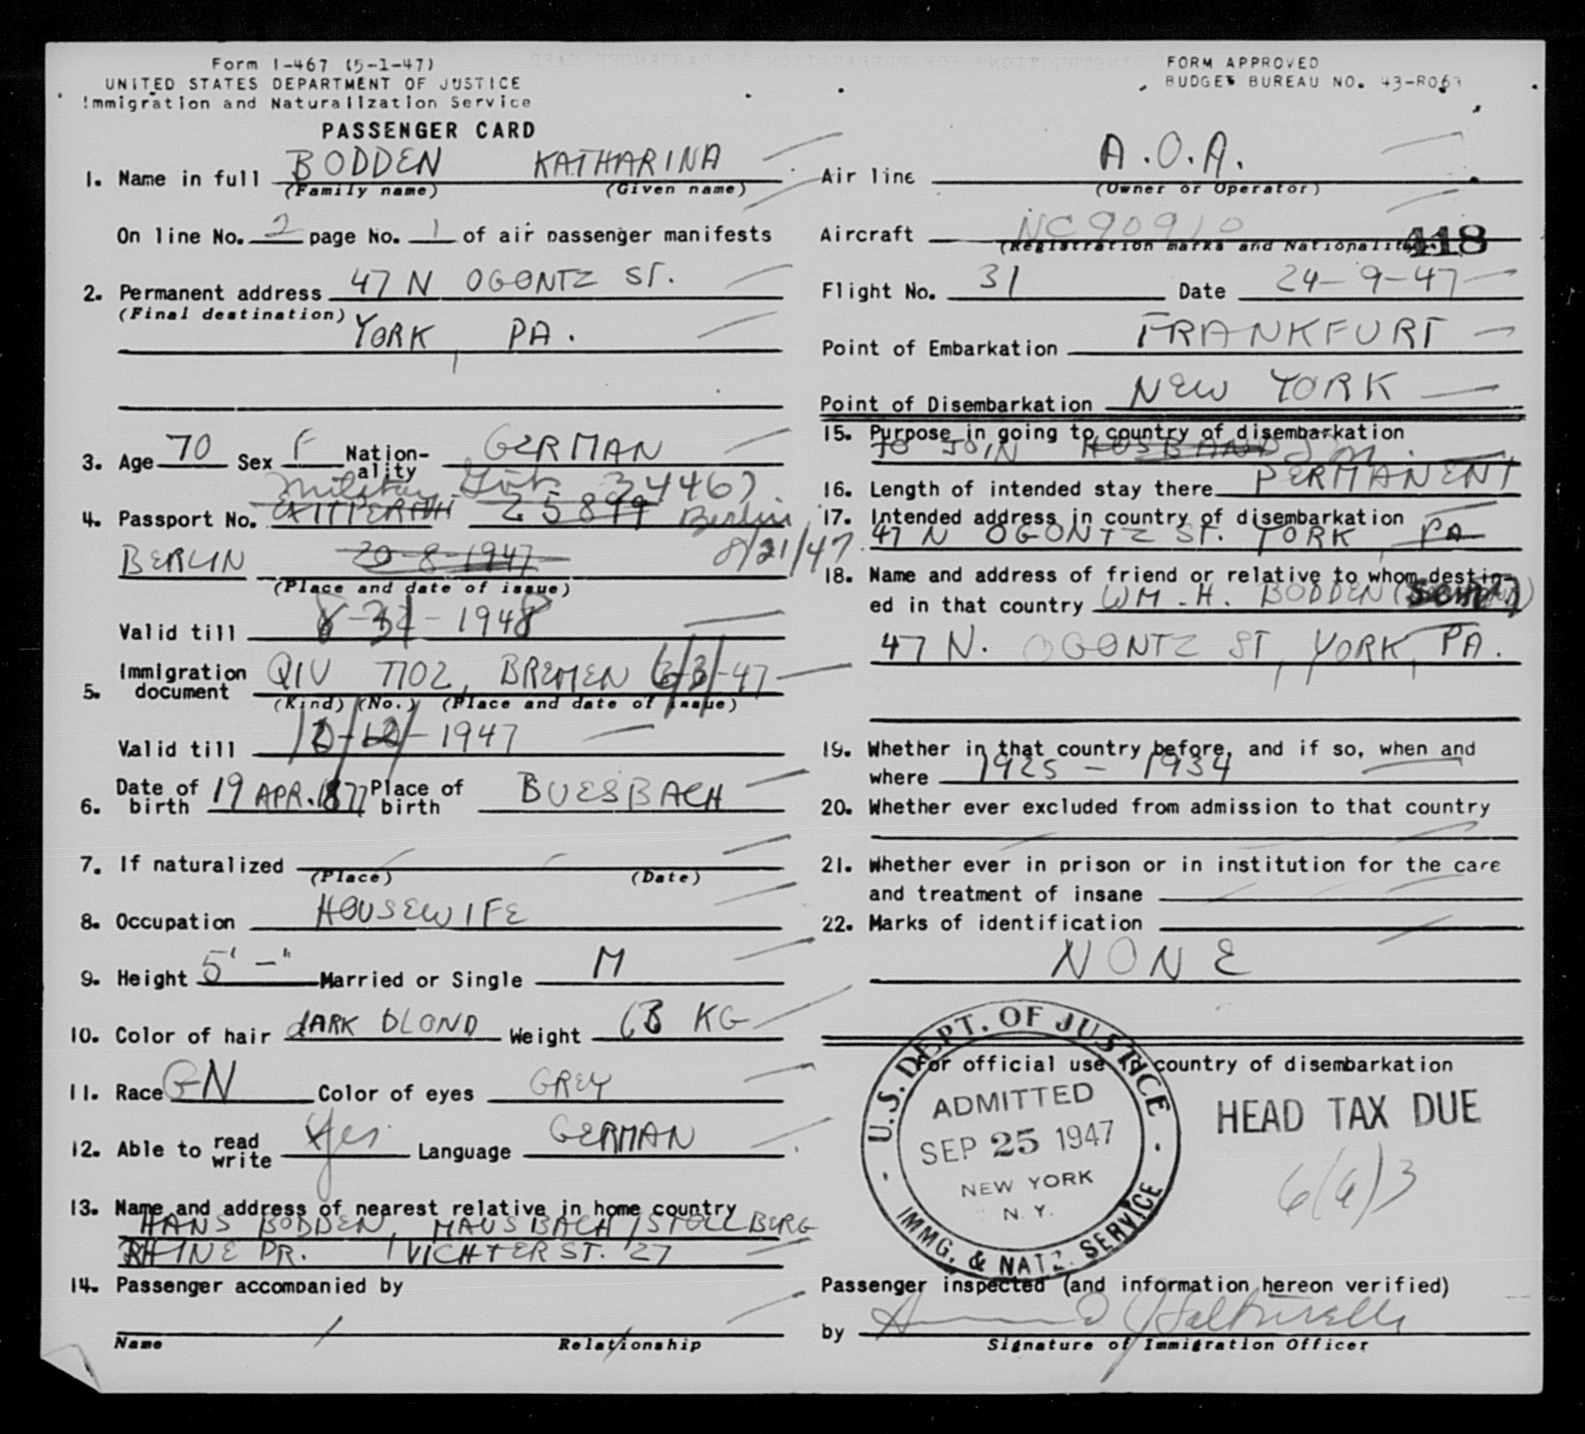 Form I-467 (5-1-47)
UNITED STATES DEPARTMENT OF JUSTICE
Immigration and Naturalization Service
PASSENGER CARD
FORM APPROVED
BUDGET BUREAU NO. 43-R063
1. Name in full BODDEN KATHARINA
(Family name) (Given name)
On line No. 2 page No. 1 of air passenger manifests
2. Permanent address 47 N OGONTZ ST.
(Final destination)
YORK, PA.
3. Age 70 Sex F Nation-ality GERMAN
Military 34467.
4. Passport No. EXITPERMIT 25899 Berlin
BERLIN 20-8-1947 8/21/47
(Place and date of issue)
Valid till 1948
5. Immigration document QIV 7702, BREMEN 47
(Kind) (No.) (Place and date of issue)
Valid till 1947
6. Date of birth 19 APR. 1877 Place of birth BUESBACH
7. If naturalized
(Place) (Date)
8. Occupation HOUSEWIFE
9. Height 5' -" Married or Single M
10. Color of hair dARK BLOND Weight 63 KG
11. Race GN Color of eyes GREY
12. Able to read write Yes Language GERMAN
13. Name and address of nearest relative in home country
HANS BODDEN, MAUSBACH/STOLLBERG
RHINE PR. VICHTERST. 27
14. Passenger accompanied by
Name Relationship
Air line A.O.A.
(Owner or Operator)
Aircraft NC90910
(Registration marks and Nationality)
418
Flight No. 31 Date 24-9-47
Point of Embarkation FRANKFURT
Point of Disembarkation NEW YORK
15. Purpose in going to country of disembarkation
TO JOIN HUSBAND
16. Length of intended stay there PERMANENT
17. Intended address in country of disembarkation
47 N OGONTZ ST. YORK, PA
18. Name and address of friend or relative to whom destin-
ed in that country WM. H. BODDEN (
47 N. OGONTZ ST, YORK, PA.
19. Whether in that country before, and if so, when and
where 1925 - 1934
20. Whether ever excluded from admission to that country
21. Whether ever in prison or in institution for the care
and treatment of insane
22. Marks of identification
NONE
For official use to country of disembarkation
U.S. DEPT. OF JUSTICE
ADMITTED
SEP 25 1947
NEW YORK
N.Y.
IMMG. & NATZ. SERVICE
HEAD TAX DUE
6(a)3
Passenger inspected (and information hereon verified)
by
Signature of Immigration Officer